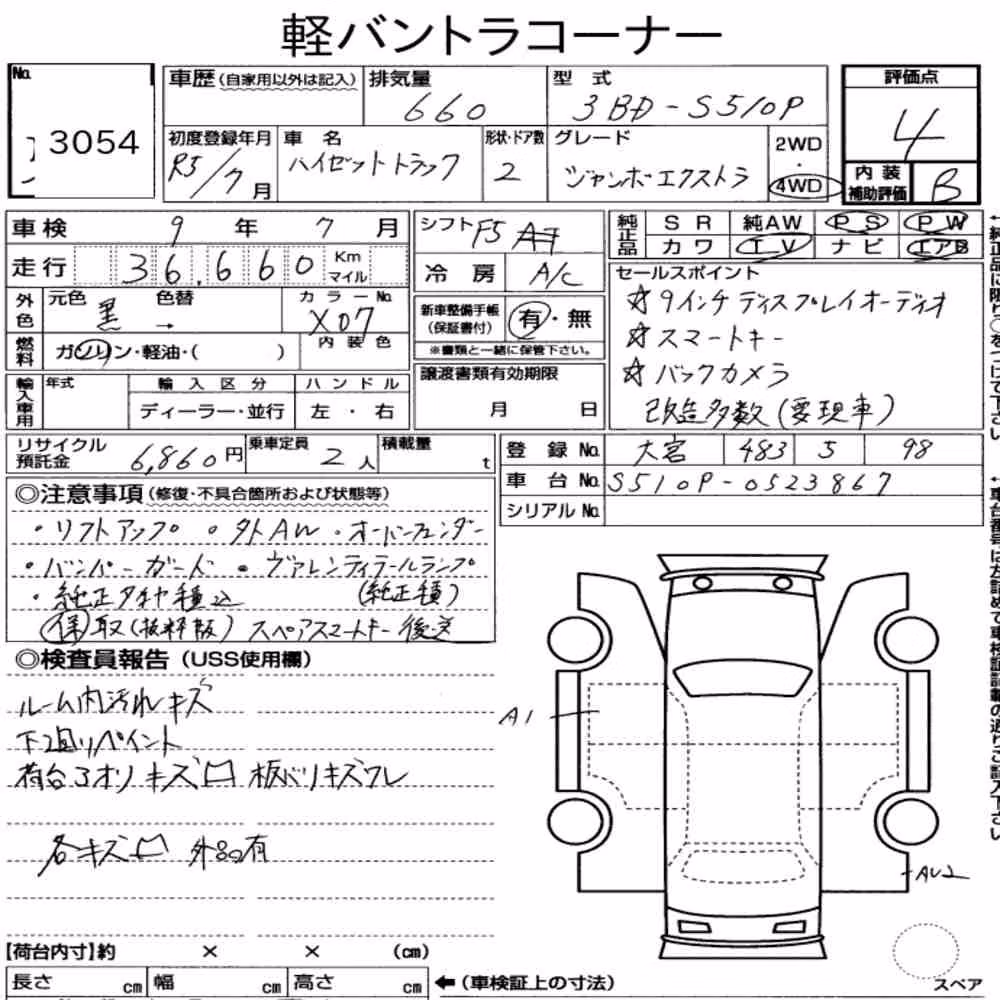 軽バントラコーナー
No. 3054
車歴(自家用以外は記入) 排気量 660 型式 3BD-S510P
評価点 4
初度登録年月 R5/7月 車名 ハイゼットトラック 形状・ドア数 2 グレード ジャンボエクストラ 2WD・4WD
内装補助評価 B
車検 9年 7月
シフト F5
純正品 SR 純AW PS PW
カワ TV ナビ エアB
走行 36,660 Km マイル
冷房 A/C
セールスポイント
☆9インチディスプレイオーディオ
☆スマートキー
☆バックカメラ
改造多数(要現車)
外色 元色 黒→ 色替 カラーNo. X07
新車整備手帳(保証書付) 有・無
※書類と一緒に保管下さい。
燃料 ガソリン・軽油・( ) 内装色
譲渡書類有効期限
月 日
輸入車用 年式 輸入区分 ハンドル
ディーラー・並行 左・右
リサイクル預託金 6,860円 乗車定員 2人 積載量 t
登録No. 大宮 483 5 98
車台No. S510P-0523867
シリアルNo.
◎注意事項(修復・不具合箇所および状態等)
・リフトアップ ・外AW ・オーバーフェンダー
・バンパーガード ・ヴァレンティテールランプ
・純正タイヤ積込 (純正積)
保取(抜粋版) スペアスマートキー後送
◎検査員報告(USS使用欄)
ルーム内汚れキズ
下廻リペイント
荷台3オリキズ凹 板バリキズワレ
各キズ凹 外品有
A1
AU2
【荷台内寸】約 × × (cm)
長さ cm 幅 cm 高さ cm ←(車検証上の寸法)
スペア